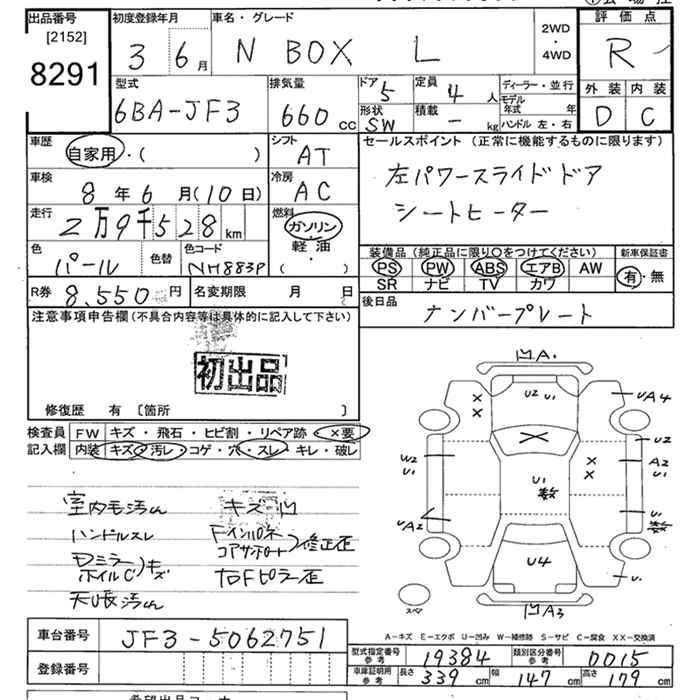 出品番号
[2152]
8291
初度登録年月
3 6月
車名・グレード
N BOX L
2WD
・
4WD
評価点
R
外装 内装
D C
型式
6BA-JF3
排気量
660 cc
ドア
5
定員
4 人
形状
SW
積載
- kg
ディーラー・並行
モデル年式 年
ハンドル 左・右
車歴
自家用・( )
シフト
AT
セールスポイント (正常に機能するものに限ります)
左パワースライドドア
シートヒーター
車検
8年6月(10日)
冷房
AC
走行
2万9千528km
燃料
ガソリン
軽油
( ・ )
色
パール
色替
色コード
NH883P
装備品 (純正品に限り○をつけてください)
PS PW ABS エアB AW
SR ナビ TV カワ
新車保証書
有・無
R券 8,550円
名変期限 月 日
後日品
ナンバープレート
注意事項申告欄 (不具合内容等は具体的に記入して下さい)
初出品
修復歴 有 [箇所 ]
検査員
記入欄
FW キズ・飛石・ヒビ割・リペア跡・×要
内装 キズ・汚レ・コゲ・穴・スレ・キレ・破レ
ハンドルスレ
ホイルC
キズ
修正歪
A1
U2 U1
UA4
U2
W2
U1
A2
U1
U1
UA2
U4
U1
A3
スペア
A－キズ E－エクボ U－凹み W－補修跡 S－サビ C－腐食 XX－交換済
車台番号
JF3-5062751
登録番号
型式指定番号
参考
19384
類別区分番号
参考
0015
車庫証明用
参考
長さ 339cm 幅 147cm 高さ 179cm